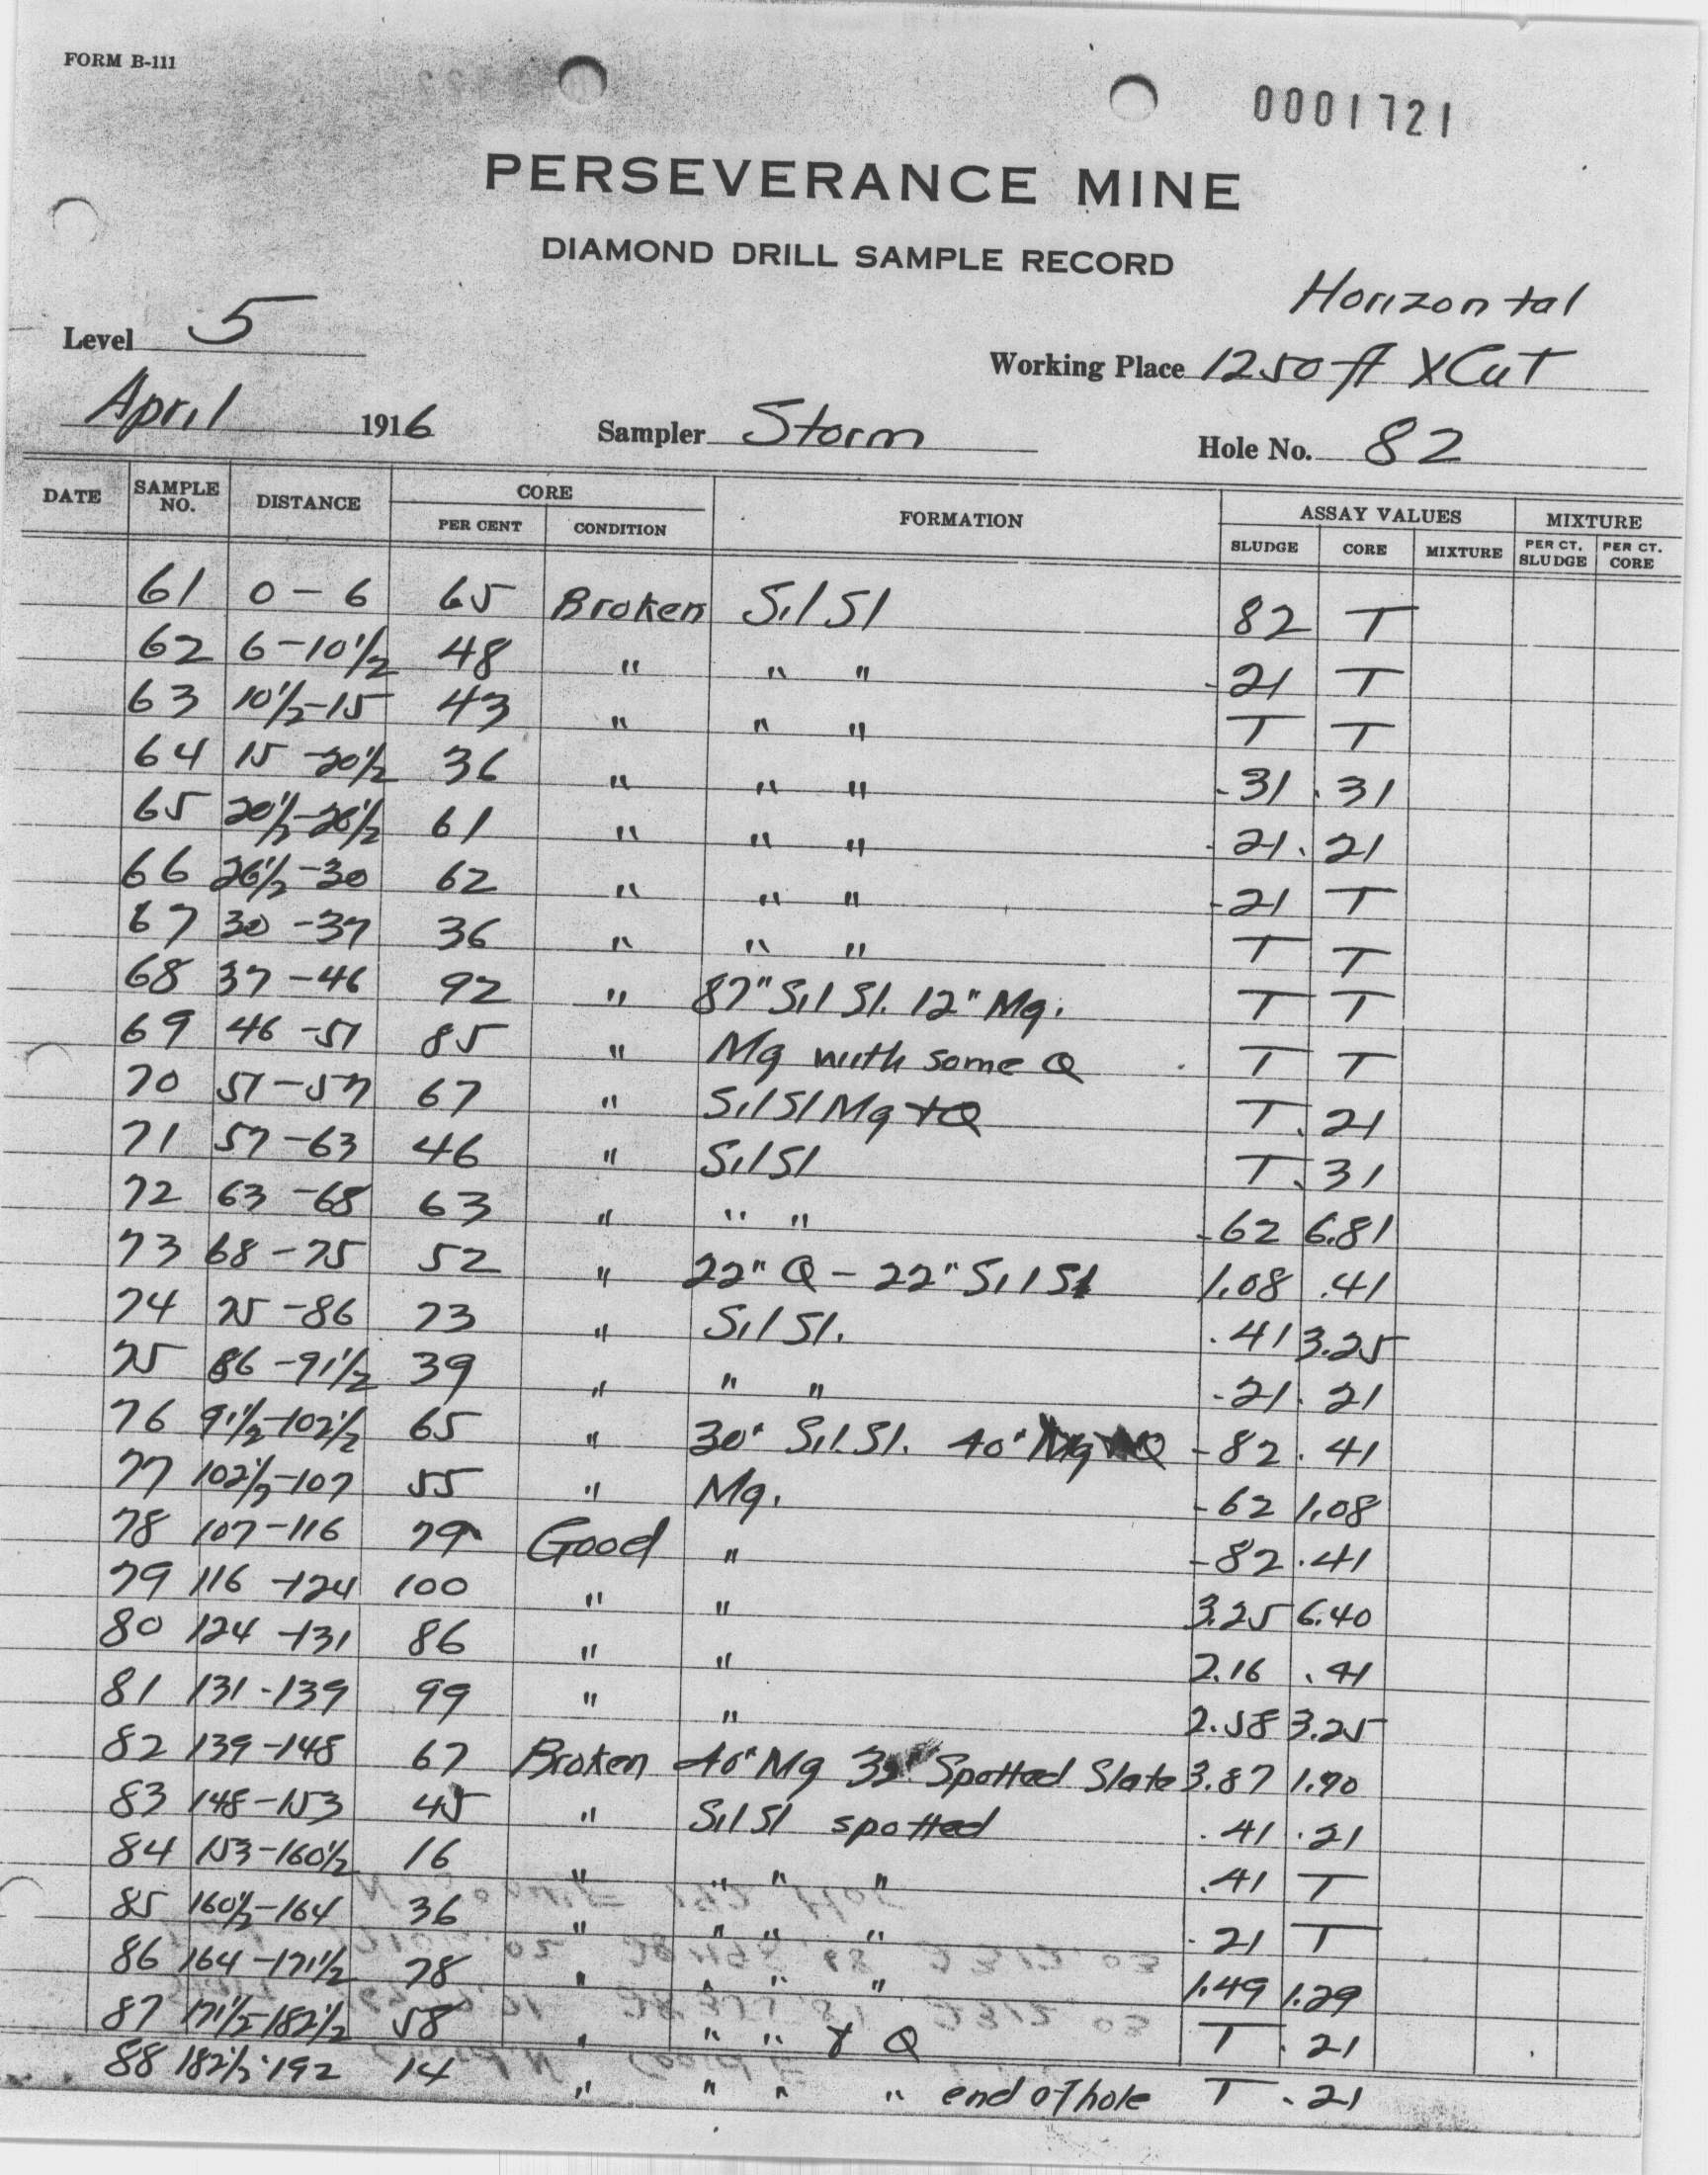 FORM B-111
0001721
PERSEVERANCE MINE
DIAMOND DRILL SAMPLE RECORD
Horizontal
Level 5 Working Place 1250 ft XCut
April 1916 Sampler Storm Hole No. 82
DATE SAMPLE NO. DISTANCE CORE PER CENT CONDITION FORMATION ASSAY VALUES SLUDGE CORE MIXTURE MIXTURE PER CT. SLUDGE PER CT. CORE
61 0-6 65 Broken Sil Sl 82 T
62 6-10½ 48 " " " .21 T
63 10½-15 43 " " " T T
64 15-20½ 36 " " " .31 .31
65 20½-26½ 61 " " " .21 .21
66 26½-30 62 " " " .21 T
67 30-37 36 " " " T T
68 37-46 92 " 87" Sil Sl. 12" Mg. T T
69 46-51 85 " Mg with some Q T T
70 51-57 67 " Sil Sl Mg + Q T .21
71 57-63 46 " Sil Sl T .31
72 63-68 63 " " " .62 6.81
73 68-75 52 " 22" Q - 22" Sil Sl 1.08 .41
74 75-86 73 " Sil Sl. .41 3.25
75 86-91½ 39 " " " .21 .21
76 91½-102½ 65 " 30" Sil. Sl. 40" Mg Q .82 .41
77 102½-107 55 " Mg. .62 1.08
78 107-116 79 Good " .82 .41
79 116-124 100 " " 3.25 6.40
80 124-131 86 " " 2.16 .41
81 131-139 99 " " 2.58 3.25
82 139-148 67 Broken 40" Mg Spotted Slate 3.87 1.90
83 148-153 45 " Sil Sl spotted .41 .21
84 153-160½ 16 " " " " .41 T
85 160½-164 36 " " " " .21 T
86 164-171½ 78 " " " " 1.49 1.29
87 171½-182½ 58 " " " & Q T .21
88 182½-192 14 " " " " end of hole T .21